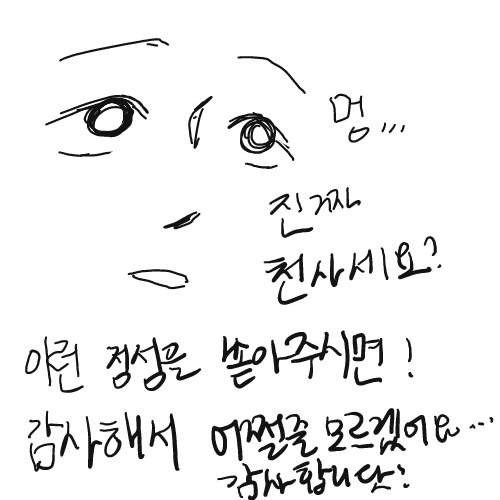 멍...
진짜
천사세요?
이런 정성을 쏟아주시면!
감사해서 어쩔줄 모르겠어요...
감사합니다!